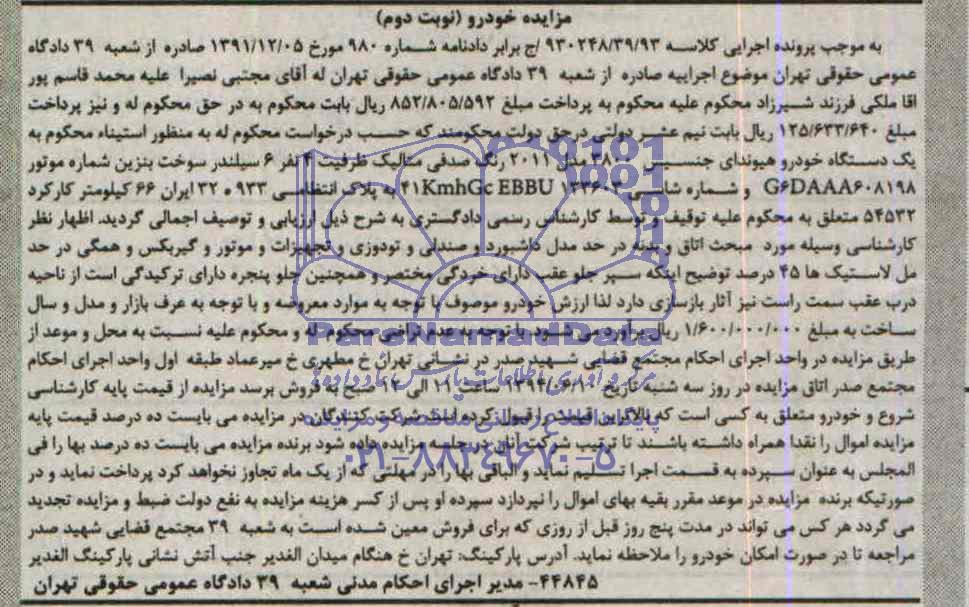 مزایده خودرو (نوبت دوم)
به موجب پرونده اجرایی کلاسه ۹۳۰۲۴۸/۳۹/۹۳ /ج برابر دادنامه شماره ۹۸۰ مورخ ۱۳۹۱/۱۲/۰۵ صادره از شعبه ۳۹ دادگاه
عمومی حقوقی تهران موضوع اجراییه صادره از شعبه ۳۹ دادگاه عمومی حقوقی تهران له آقای مجتبی نصیرا علیه محمد قاسم پور
اقا ملکی فرزند شیرزاد محکوم علیه محکوم به پرداخت مبلغ ۸۵۲/۸۰۵/۵۹۲ ریال بابت محکوم به در حق محکوم له و نیز پرداخت
مبلغ ۱۲۵/۶۳۳/۶۴۰ ریال بابت نیم عشر دولتی درحق دولت محکومند که حسب درخواست محکوم له به منظور استیفاء محکوم به
یک دستگاه خودرو هیوندای جنسیس ۳۸۰۰ مدل ۲۰۱۱ رنگ صدفی متالیک ظرفیت ۴ نفر ۶ سیلندر سوخت بنزین شماره موتور
G۶DAAA۶۰۸۱۹۸ و شماره شاسی ۴۱KmhGc EBBU به پلاک انتظامی ۹۳۳ ه ۳۲ ایران ۶۶ کیلومتر کارکرد
۵۴۵۳۲ متعلق به محکوم علیه توقیف و توسط کارشناس رسمی دادگستری به شرح ذیل ارزیابی و توصیف اجمالی گردید. اظهار نظر
کارشناسی وسیله مورد مبحث اتاق و بدنه در حد مدل داشبورد و صندلی و تودوزی و تجهیزات و موتور و گیربکس و همگی در حد
مل لاستیک ها ۴۵ درصد توضیح اینکه سپر جلو عقب دارای خردگی مختصر و همچنین جلو پنجره دارای ترکیدگی است از ناحیه
درب عقب سمت راست نیز آثار بازسازی دارد لذا ارزش خودرو موصوف با توجه به موارد معروضه و با توجه به عرف بازار و مدل و سال
ساخت به مبلغ ۱/۶۰۰/۰۰۰/۰۰۰ ریال برآورد می شود. با توجه به عدم تراضی محکوم له و محکوم علیه نسبت به محل و موعد از
طریق مزایده در واحد اجرای احکام مجتمع قضایی شهید صدر در نشانی تهران خ مطهری خ میرعماد طبقه اول واحد اجرای احکام
مجتمع صدر اتاق مزایده در روز سه شنبه تاریخ ۱۳۹۴/۰۶/۱۰ ساعت ۱۱ الی ۱۲ صبح به فروش برسد مزایده از قیمت پایه کارشناسی
شروع و خودرو متعلق به کسی است که بالاترین قیمت را قبول کرده است شرکت کنندگان در مزایده می بایست ده درصد قیمت پایه
مزایده اموال را نقدا همراه داشته باشند تا ترتیب شرکت آنان در جلسه مزایده داده شود برنده مزایده می بایست ده درصد بها را فی
المجلس به عنوان سپرده به قسمت اجرا تسلیم نماید و الباقی بها را در مهلتی که از یک ماه تجاوز نخواهد کرد پرداخت نماید و در
صورتیکه برنده مزایده در موعد مقرر بقیه بهای اموال را نپردازد سپرده او پس از کسر هزینه مزایده به نفع دولت ضبط و مزایده تجدید
می گردد هر کس می تواند در مدت پنج روز قبل از روزی که برای فروش معین شده است به شعبه ۳۹ مجتمع قضایی شهید صدر
مراجعه تا در صورت امکان خودرو را ملاحظه نماید. آدرس پارکینگ: تهران خ هنگام میدان الغدیر جنب آتش نشانی پارکینگ الغدیر
۴۴۸۴۵- مدیر اجرای احکام مدنی شعبه ۳۹ دادگاه عمومی حقوقی تهران
ParsNamadData
پایگاه اطلاع رسانی مناقصه و مزایده
۰۲۱-۸۸۳۴۹۶۷۰-۵